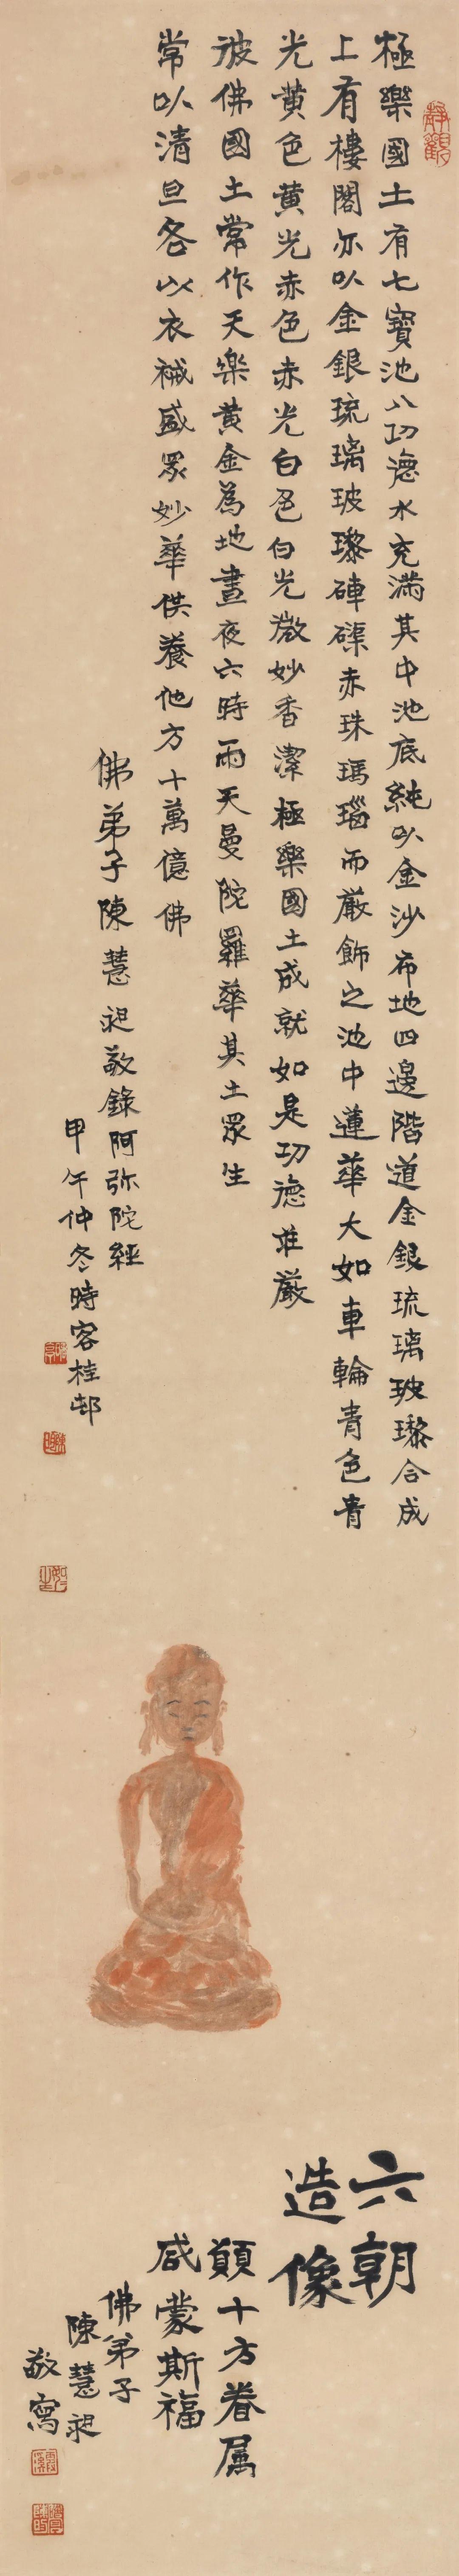 極樂國土有七寶池八功德水充滿其中池底純以金沙布地四邊階道金銀琉璃玻瓈合成
上有樓閣亦以金銀琉璃玻瓈硨磲赤珠瑪瑙而嚴飾之池中蓮華大如車輪青色青
光黄色黄光赤色赤光白色白光微妙香潔極樂國土成就如是功德莊嚴
彼佛國土常作天樂黄金為地晝夜六時雨天曼陀羅華其土眾生
常以清旦各以衣祴盛眾妙華供養他方十萬億佛
佛弟子陳慧昶敬錄阿弥陀經
甲午仲冬時客桂邨
靜觀
六朝
造像
願十方眷属
咸蒙斯福
佛弟子
陳慧昶
敬寫